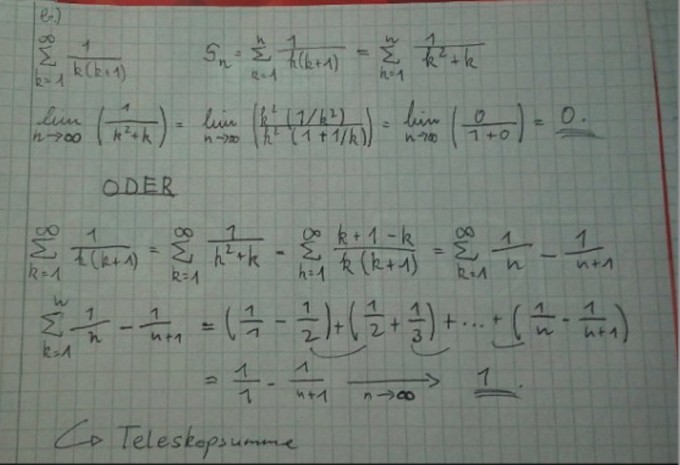 e.)
∑_{k=1}^{∞} 1/(k(k+1))    S_n = ∑_{k=1}^{n} 1/(k(k+1)) = ∑_{k=1}^{n} 1/(k²+k)
lim_{n→∞} (1/(k²+k)) = lim_{n→∞} (k²(1/k²)/(k²(1+1/k))) = lim_{n→∞} (0/(1+0)) = 0.
ODER
∑_{k=1}^{∞} 1/(k(k+1)) = ∑_{k=1}^{∞} 1/(k²+k) = ∑_{k=1}^{∞} (k+1-k)/(k(k+1)) = ∑_{k=1}^{∞} 1/n - 1/(n+1)
∑_{k=1}^{n} 1/n - 1/(n+1) = (1/1 - 1/2) + (1/2 + 1/3) + ... + (1/n - 1/(n+1))
= 1/1 - 1/(n+1) →_{n→∞} 1.
↳ Teleskopsumme